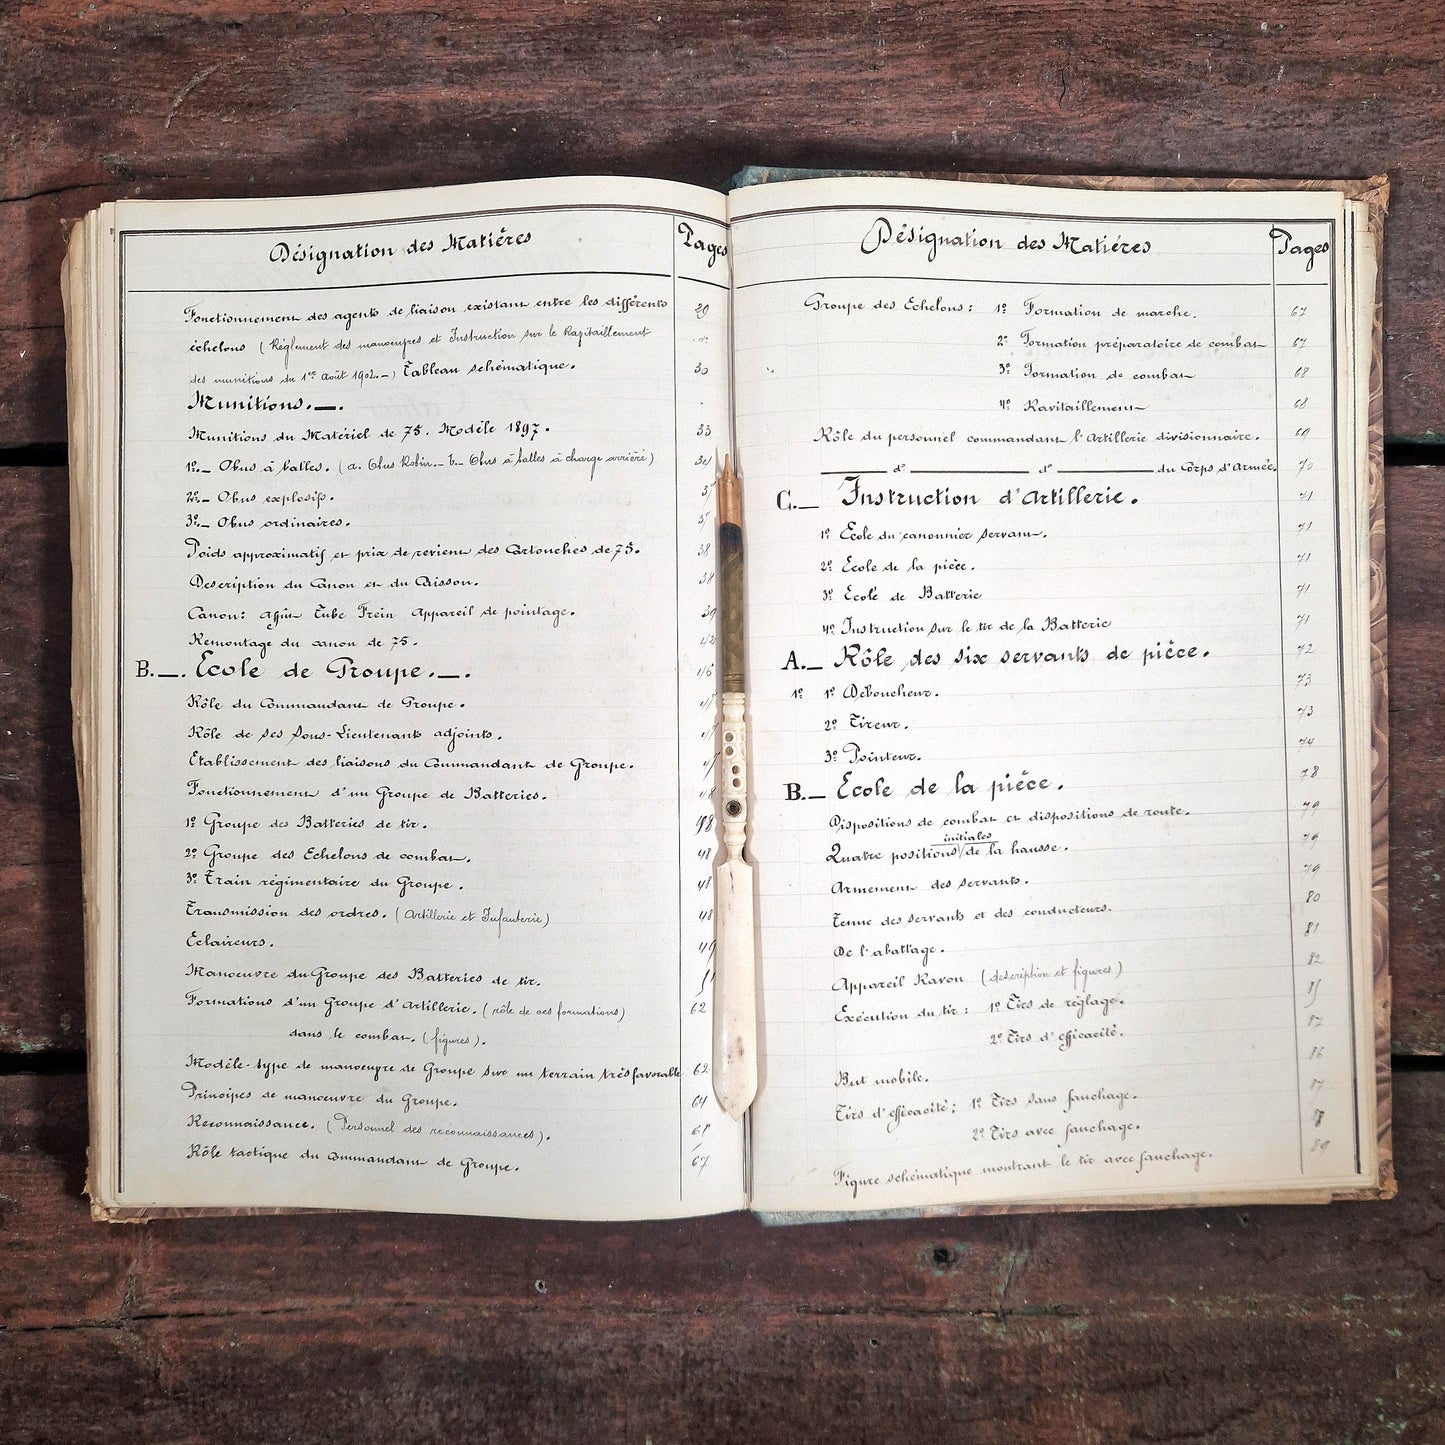 Désignation des Matières Pages
Fonctionnement des agents de liaison existant entre les différents 29
échelons (Règlement des manoeuvres et Instruction sur le Ravitaillement
des munitions du 1er Août 1902.-) Tableau schématique. 30
Munitions.—.
Munitions du Matériel de 75. Modèle 1897. 33
1º.- Obus à balles. (a. Obus Robin.- b.- Obus à balles à charge arrière) 34
2º.- Obus explosifs.
3º.- Obus ordinaires.
Poids approximatif et prix de revient des Cartouches de 75. 38
Description du Canon et du Caisson. 38
Canon: Affût Tube Frein Appareil de pointage. 39
Remontage du canon de 75. 42
B.—. Ecole de Groupe.—. 46
Rôle du Commandant de Groupe. 47
Rôle de ses Sous-Lieutenants adjoints. 47
Etablissement des liaisons du Commandant de Groupe. 47
Fonctionnement d'un Groupe de Batteries. 48
1º Groupe des Batteries de tir. 48
2º Groupe des Echelons de combat. 48
3º Train régimentaire du Groupe. 48
Transmission des ordres. (Artillerie et Infanterie) 48
Eclaireurs. 49
Manoeuvre du Groupe des Batteries de tir. 51
Formations d'un Groupe d'Artillerie. (rôle de ces formations) 62
dans le combat. (figures).
Modèle-type de manoeuvre de Groupe sur un terrain très favorable 62
Principes de manoeuvre du Groupe. 64
Reconnaissance. (Personnel des reconnaissances). 65
Rôle tactique du Commandant de Groupe. 67
Désignation des Matières Pages
Groupe des Echelons: 1º Formation de marche. 67
2º Formation préparatoire de combat 67
3º Formation de combat 68
4º Ravitaillement 68
Rôle du personnel commandant l'Artillerie divisionnaire. 69
— dº — dº — du Corps d'Armée. 70
C.— Instruction d'Artillerie. 71
1º Ecole du canonnier servant. 71
2º Ecole de la pièce. 71
3º Ecole de Batterie 71
4º Instruction sur le tir de la Batterie 71
A.— Rôle des six servants de pièce. 72
1º 1º Déboucheur. 73
2º Tireur. 73
3º Pointeur. 74
B.— Ecole de la pièce. 78
Dispositions de combat et dispositions de route. 79
initiales
Quatre positions/de la hausse. 79
Armement des servants. 79
Tenue des servants et des conducteurs. 80
De l'abattage. 81
Appareil Ravon (description et figures) 82
Exécution du tir: 1º Tirs de réglage. 85
2º Tirs d'efficacité. 87
But mobile. 86
Tirs d'efficacité: 1º Tirs sans fauchage. 87
2º Tirs avec fauchage.
Figure schématique montrant le tir avec fauchage. 89